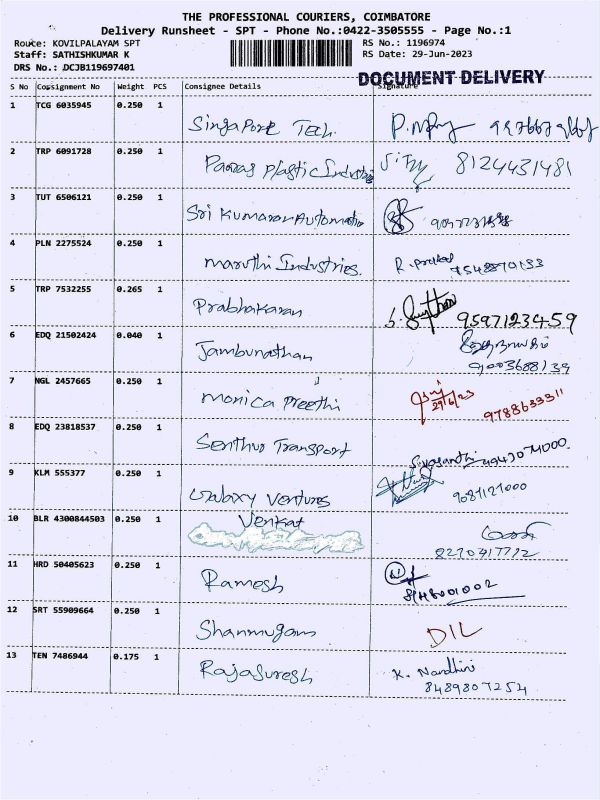 THE PROFESSIONAL COURIERS, COIMBATORE
Delivery Runsheet - SPT - Phone No.:0422-3505555 - Page No.:1
Route: KOVILPALAYAM SPT RS No.: 1196974
Staff: SATHISHKUMAR K RS Date: 29-Jun-2023
DRS No.: DCJB119697401
DOCUMENT DELIVERY
S No Consignment No Weight PCS Consignee Details Signature
1 TCG 6035945 0.250 1
Singapore Tech.
2 TRP 6091728 0.250 1
Paaras Plastic Industries 8124431481
3 TUT 6506121 0.250 1
Sri Kumaran Automation
4 PLN 2275524 0.250 1
Maruthi Industries.
5 TRP 7532255 0.265 1
Prabhakaran 9597123459
6 EDQ 21502424 0.040 1
Jambunathan 9003688139
7 NGL 2457665 0.250 1
Monica Preethi 29/6/23
8 EDQ 23818537 0.250 1
Senthur Transport
9 KLM 555377 0.250 1
Galaxy Ventures 9081121000
10 BLR 4300844503 0.250 1
Venkat
8270417712
11 HRD 50405623 0.250 1
Ramesh
12 SRT 55909664 0.250 1
Shanmugam DIL
13 TEN 7486944 0.175 1
Rajasuresh K. Nandhini
8489807254